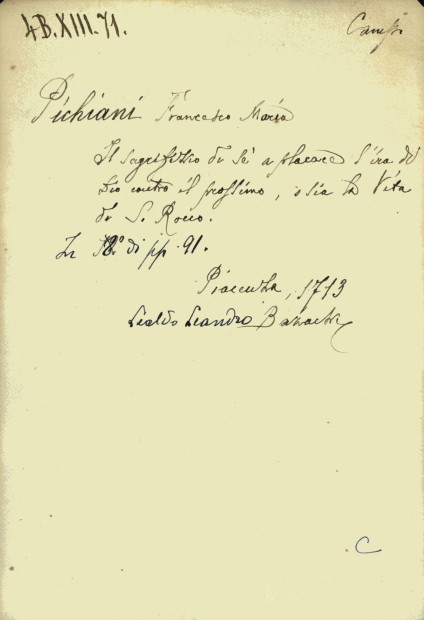 4B.XIII.71.
Pichiani Francesco Maria
Il sagrifizio di sè a placare l'ira di
Dio contro il prossimo, o sia la Vita
di S. Rocco.
In 12° di pp. 91.
Piacenza, 1713
Lealdo Leandro Bazachi
C